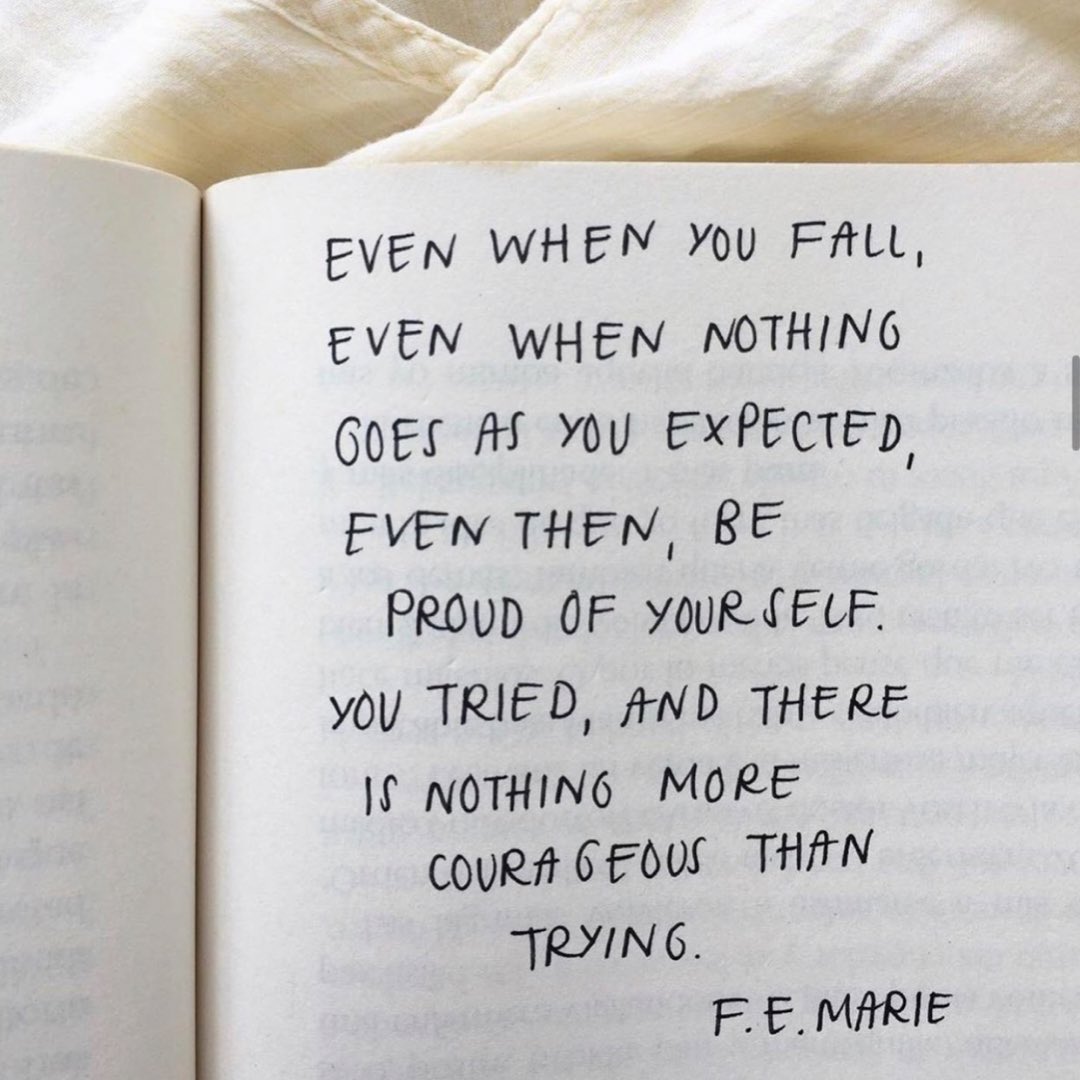 EVEN WHEN YOU FALL,
EVEN WHEN NOTHING
GOES AS YOU EXPECTED,
EVEN THEN, BE
PROUD OF YOURSELF.
YOU TRIED, AND THERE
IS NOTHING MORE
COURAGEOUS THAN
TRYING.
F.E. MARIE